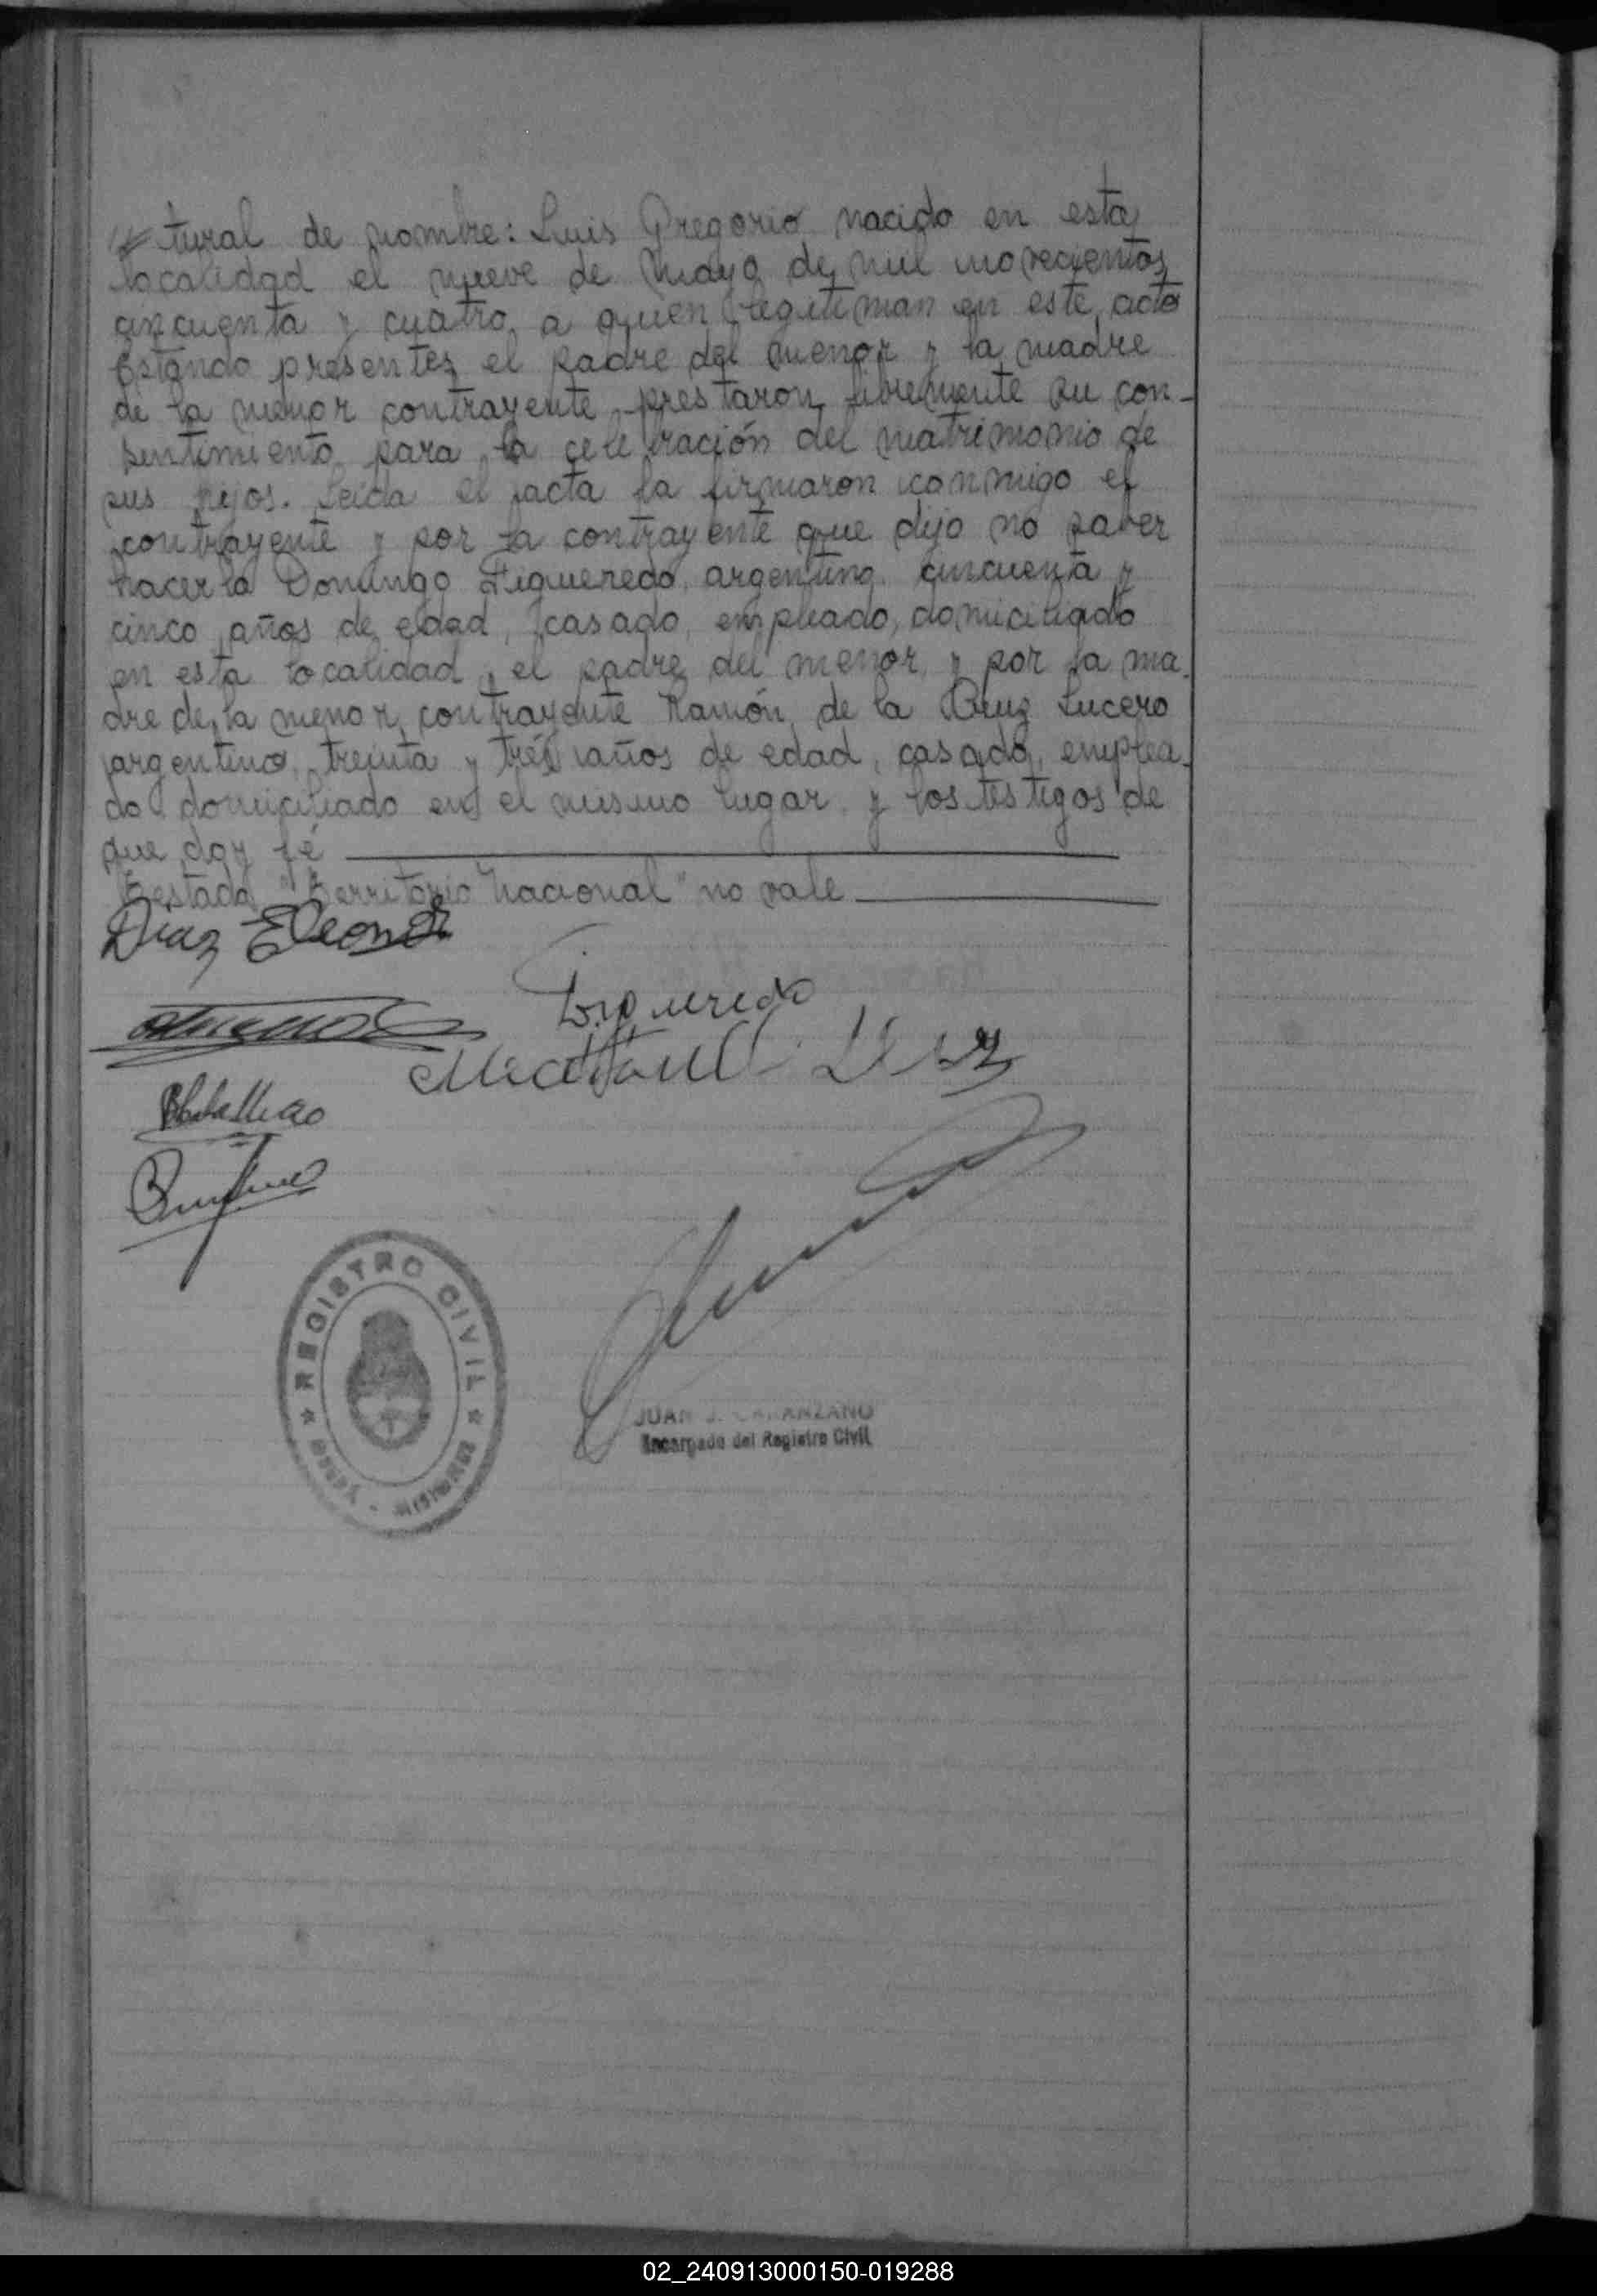 tural de nombre: Luis Gregorio nacido en esta
localidad el nueve de mayo de mil novecientos
cincuenta y cuatro, a quien legitiman en este acto
Estando presentes el padre del menor y la madre
de la menor contrayente prestaron libremente su con-
sentimiento para la celebración del matrimonio de
sus hijos. Leída el acta la firmaron conmigo el
contrayente y por la contrayente que dijo no saber
hacerlo Domingo Figueredo, argentino, cincuenta y
cinco años de edad, casado, empleado, domiciliado
en esta localidad, el padre del menor, y por la ma-
dre de la menor contrayente Ramón de la Cruz Lucero
argentino, treinta y tres años de edad, casado, emplea-
do domiciliado en el mismo lugar y los testigos de
que doy fé
Testado "Territorio Nacional" no vale
Diaz Eleonor
Figueredo
Diaz
REGISTRO CIVIL
JUAN J.
Encargado del Registro Civil
02_240913000150-019288